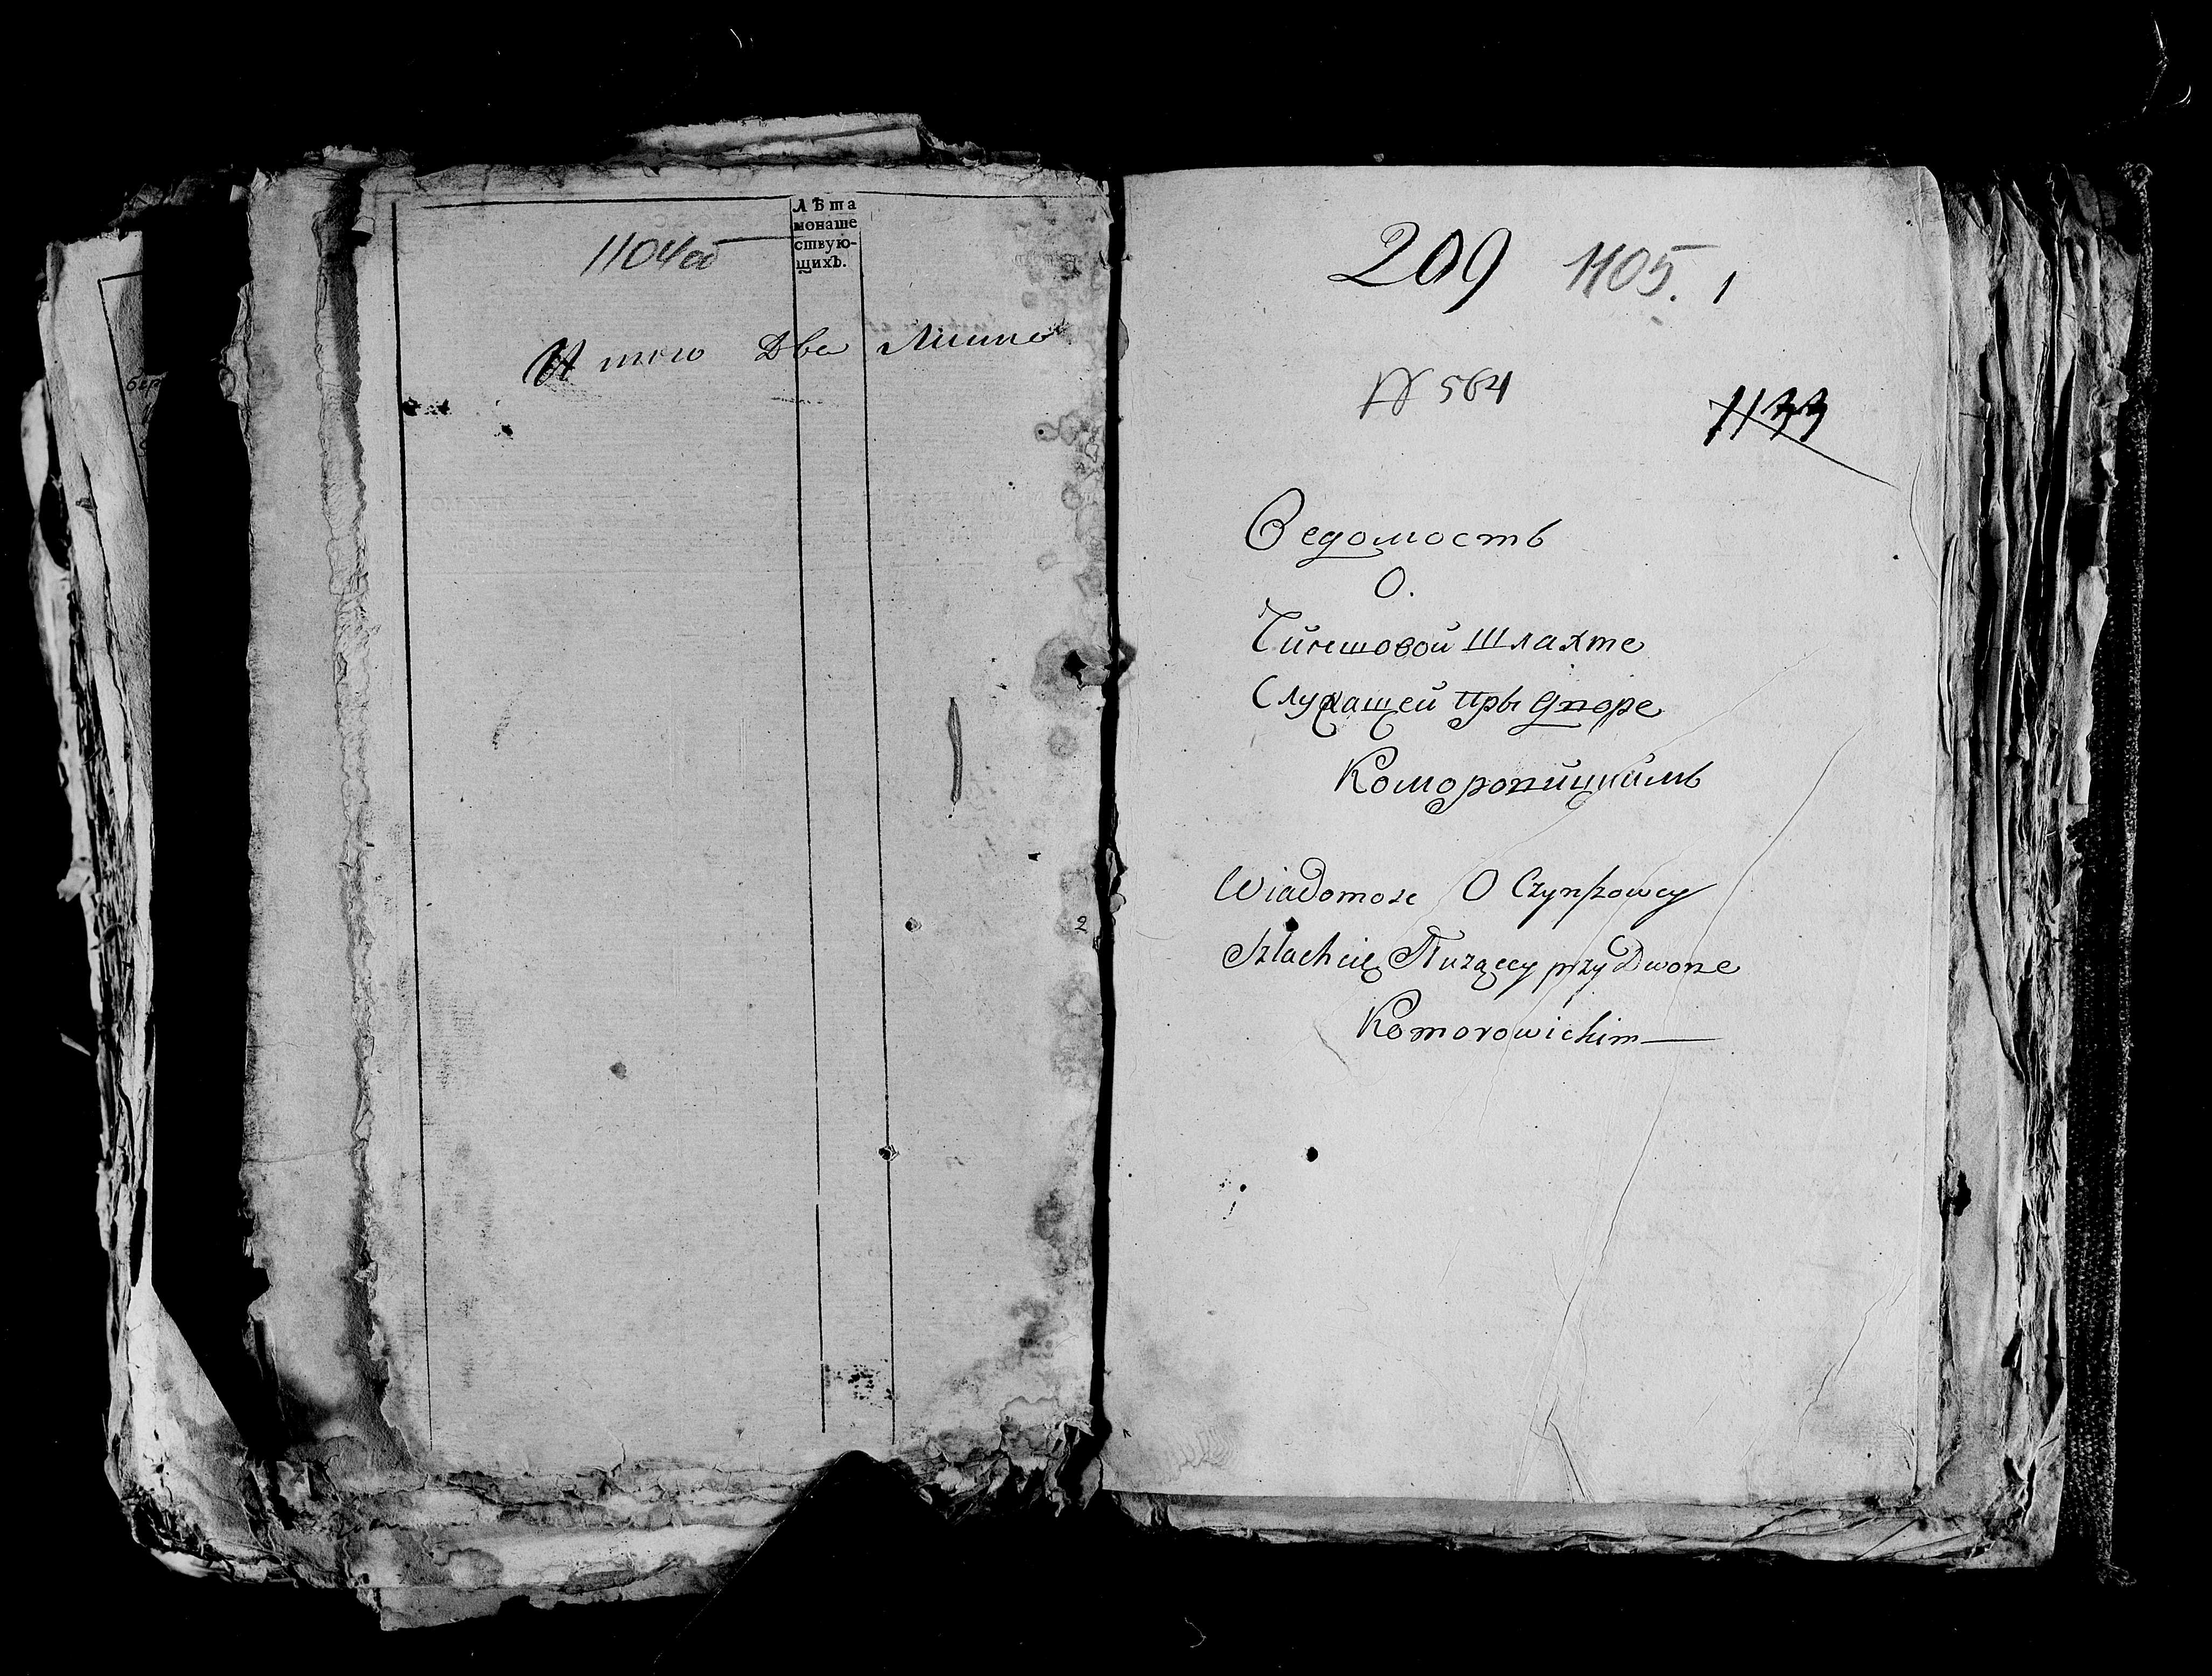 Лѣта
монаше
ствую-
щихъ.
1104об
Итого Два Листа
2
бер
209 1105. 1
№ 584
1133
Ведомость
О.
Чиншовой Шляхте
Служащей при дворе
Коморовицкимъ
Wiadomosc O Czynszowey
Szlachcie Służącey przy Dworze
Komorowickim